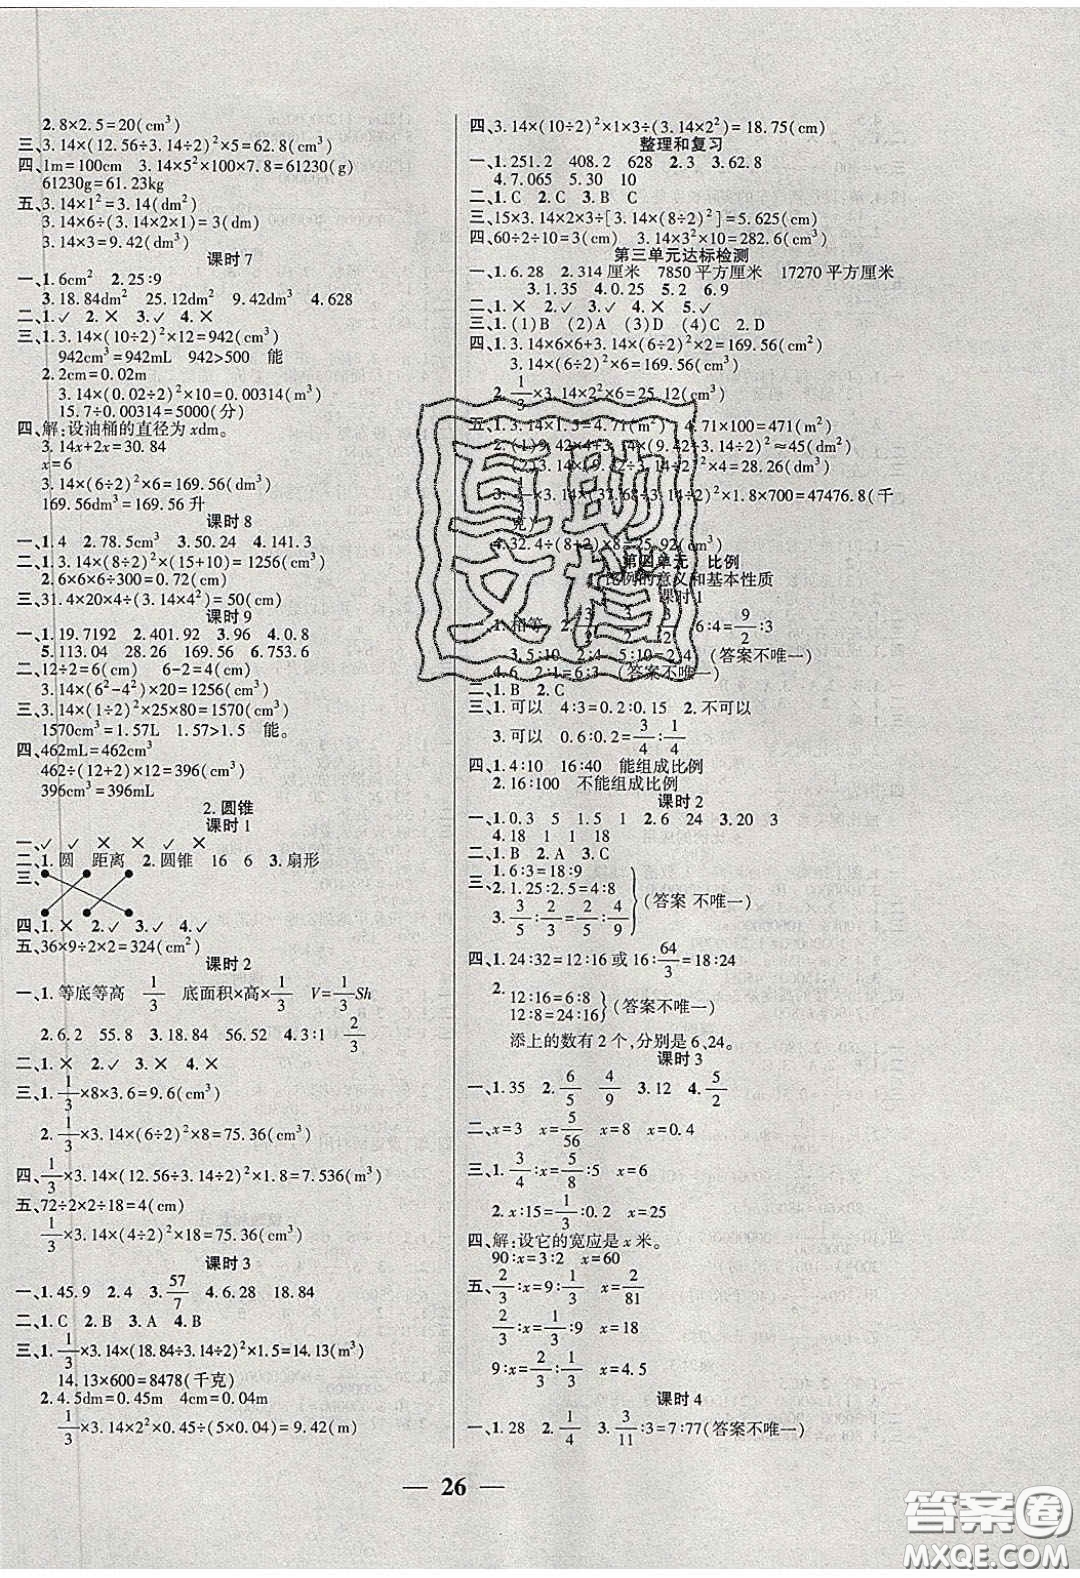 2. 8×2.5=20(cm³)
三、3.14×(12.56÷3.14÷2)²×5=62.8(cm³)
四、1m=100cm 3.14×5²×100×7.8=61230(g)
61230g=61.23kg
五、3.14×1²=3.14(dm²)
3.14×6÷(3.14×2×1)=3(dm)
3.14×3=9.42(dm³)
课时7
一、1.6cm² 2.25∶9
3.18.84dm² 25.12dm² 9.42dm³ 4.628
二、1.✓ 2.✕ 3.✓ 4.✕
三、1.3.14×(10÷2)²×12=942(cm³)
942cm³=942mL 942>500 能
2.2cm=0.02m
3.14×(0.02÷2)²×10=0.00314(m³)
15.7÷0.00314=5000(分)
四、解:设油桶的直径为xdm。
3.14x+2x=30.84
x=6
3.14×(6÷2)²×6=169.56(dm³)
169.56dm³=169.56升
课时8
一、1.4 2.78.5cm³ 3.50.24 4.141.3
二、1.3.14×(8÷2)²×(15+10)=1256(cm³)
2.6×6×6÷300=0.72(cm)
三、31.4×20×4÷(3.14×4²)=50(cm)
课时9
一、1.19.7192 2.401.92 3.96 4.0.8
5.113.04 28.26 169.56 6.753.6
二、12÷2=6(cm) 6-2=4(cm)
3.14×(6²-4²)×20=1256(cm³)
三、3.14×(1÷2)²×25×80=1570(cm³)
1570cm³=1.57L 1.57>1.5 能。
四、462mL=462cm³
462÷(12+2)×12=396(cm³)
396cm³=396mL
2.圆锥
课时1
一、✓ ✓ ✕ ✕ ✓ ✕
二、1.圆 距离 2.圆锥 16 6 3.扇形
三、
四、1.✕ 2.✓ 3.✓ 4.✓
五、36×9÷2×2=324(cm²)
课时2
一、1.等底等高 1/3 底面积×高×1/3 V=1/3Sh
2.6.2 55.8 3.18.84 56.52 4.3∶1 2/3
二、1.✕ 2.✓ 3.✕ 4.✕
三、1.1/3×8×3.6=9.6(cm³)
2.1/3×3.14×(6÷2)²×8=75.36(cm³)
四、1/3×3.14×(12.56÷3.14÷2)²×1.8=7.536(m³)
五、72÷2×2÷18=4(cm)
1/3×3.14×(4÷2)²×18=75.36(cm³)
课时3
一、1.45.9 2.4 3.57/7 4.6.28 18.84
二、1.C 2.B 3.A 4.B
三、1.1/3×3.14×(18.84÷3.14÷2)²×1.5=14.13(m³)
14.13×600=8478(千克)
2.4.5dm=0.45m 4cm=0.04m
1/3×3.14×2²×0.45÷(5×0.04)=9.42(m)
四、3.14×(10÷2)²×1×3÷(3.14×2²)=18.75(cm)
整理和复习
一、1.251.2 408.2 628 2.3 3.62.8
4.7.065 5.30 10
二、1.C 2.C 3.B 4.C
三、15×3.14×2×3÷[3.14×(8÷2)²]=5.625(cm)
四、60÷2÷10=3(cm) 3.14×3²×10=282.6(cm³)
第三单元达标检测
一、1.6.28 2.314厘米 7850平方厘米 17270平方厘米
3.1.35 4.0.25 5.2 6.9
二、1.✕ 2.✓ 3.✓ 4.✕ 5.✓
三、1.(1)B (2)A (3)D (4)C 2.D
四、1.3.14×6×6+3.14×(6÷2)²×2=169.56(cm²)
3.14×(6÷2)²×6=169.56(cm³)
2.1/3×3.14×2²×6=25.12(cm³)
五、1.3.14×1.5=4.71(m²) 4.71×100=471(m²)
2.(1)9.42×4+3.14×(9.42÷3.14÷2)²≈45(dm²)
(2)3.14×(9.42÷3.14÷2)²×4=28.26(dm³)
3.1/3×3.14×(37.68÷3.14÷2)²×1.8×700=47476.8(千
克)
4.32.4÷(8+2)×8=25.92(dm³)
第四单元 比例
比例的意义和基本性质
课时1
一、1.相等 2. 6∶4=9/2∶3
3.5∶10 2∶4 5∶10=2∶4 (答案不唯一)
4.6 2∶1=6∶3(答案不唯一)
二、1.B 2.C
三、1.可以 4∶3=0.2∶0.15 2.不可以
3.可以 0.6∶0.2=3/4∶1/4
四、1.4∶10 16∶40 能组成比例
2.16∶100 不能组成比例
课时2
一、1.0.3 5 1.5 1 2.6 24 3.20 3
4.18 1 1 18
二、1.B 2.A 3.C
三、1.6∶3=18∶9
2.1.25∶2.5=4∶8 (答案 不唯一)
3.3/5∶2/3=2/5∶4/9
四、1.24∶32=12∶16或16∶64/3=18∶24
2.12∶16=6∶8
12∶8=24∶16 (答案不唯一)
添上的数有2个,分别是6、24。
课时3
一、1.35 2.6/5 4/9 3.12 4.5/2
二、x=3 x=5/56 x=8 x=0.4
三、1.3/4∶x=5/8∶5 x=6
2.x∶15=1/3∶0.2 x=25
四、解:设它的宽应是x米。
90∶x=3∶2 x=60
五、2/3∶x=9∶1/3 x=2/81
2/3∶x=1/3∶9 x=18
9∶x=2/3∶1/3 x=4.5
课时4
一、1.28 2.1/4 3.3/11∶3=7∶77(答案不唯一)
— 26 —
互助
文档
答案圈
MXQE.COM